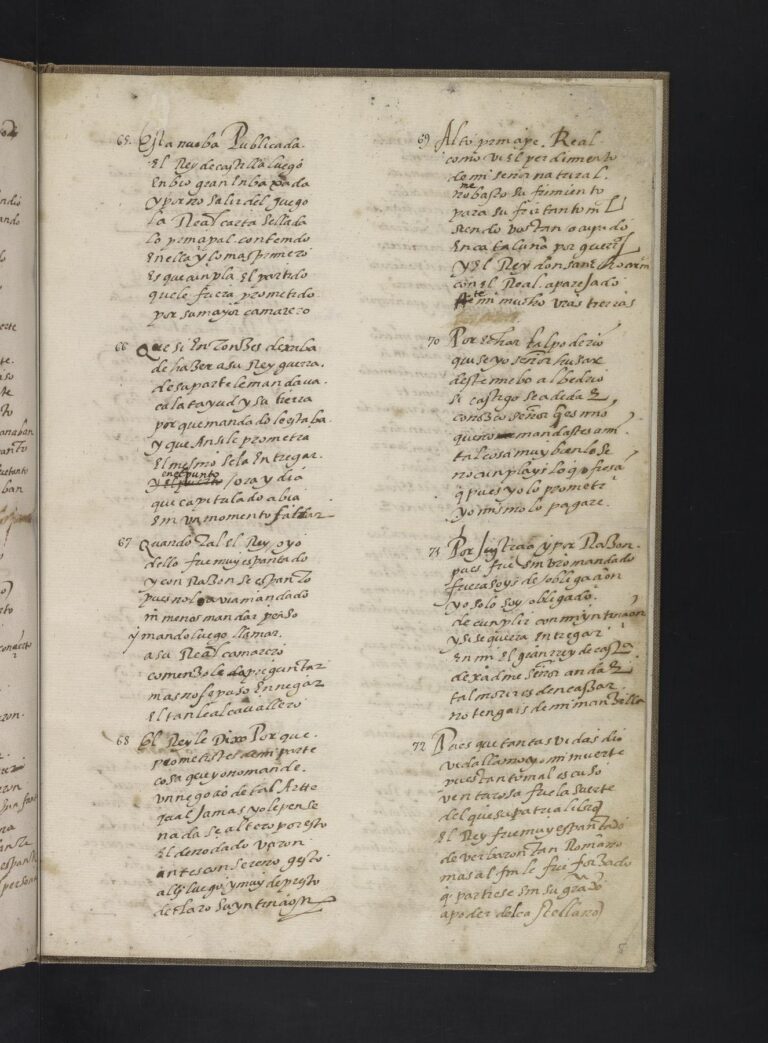 65. Esta nueba Publicada
el Rey de castilla luego
enbio gran enbaxada
y para no salir del juego
la Real carta sellada
lo principal contenido
en ella y lo mas primero
es que cunpla el partido
que le fuera prometido
por su mayor camarero
66 Que si entonzes dexaba
de hazer a su Rey guerra
de su parte le mandava
calatayud y su tierra
por que mandado le estaba
y que ansi le prometia
el mesmo sela entregar
en el punto
y el puerto / ora y dia
que capitulado abia
sin un momento faltar
67 Quando tal el Rey oyo
dello fue muy espantado
y con Razon se espanto
pues no lo avia mandado
ni menos mandar penso
y mando luego llamar
a su Real camarero
comenzole a preguntar
mas no se puso en negar
el tan leal cavallero
68 El Rey le Dixo Por que
prometistes de mi parte
cosa que yo no mande
un negocio de tal Artte
qual Jamas yo le pense
nada se altero por esto
el denodado varon
antes con sereno gesto
alli luego y muy de presto
declaro su yntincion
69 Alto principe Real
como vi el perdimiento
de mi señor natural
no basto su
para su
siendo vos tan ocupado
en cataluña por guerra
y el Rey don
con el Real aparejado
mucho vras tierras
70 Por echar tal poderio
quise yo señor husar
deste mi albedrio
si castigo se a de dar
conozco señor q es mio
que no mandastes a mi
tal cosa muy bien lo se
no cunplays lo q
q pues yo lo prometi
yo mismo lo pagare
71 Por Justicia y por Razon
pues fue sin tro mandado
fuera soys de obligacion
yo solo soy obligado
de cunplir con my yntincion
y si se quiera entregar
en mi el gran rey de castilla
dexadme señor andar
tal
no tengais de mi manzilla
72 Pues que tantas vidas dio
vida llamo yo mi muerte
pues tanto mal escuso
venturosa fue la suerte
del que su patria libro
el Rey fue muy espantado
de ver baron tan Romano
mas al fin le fue forzado
q partiese sin su grado
a poder del castellano
8